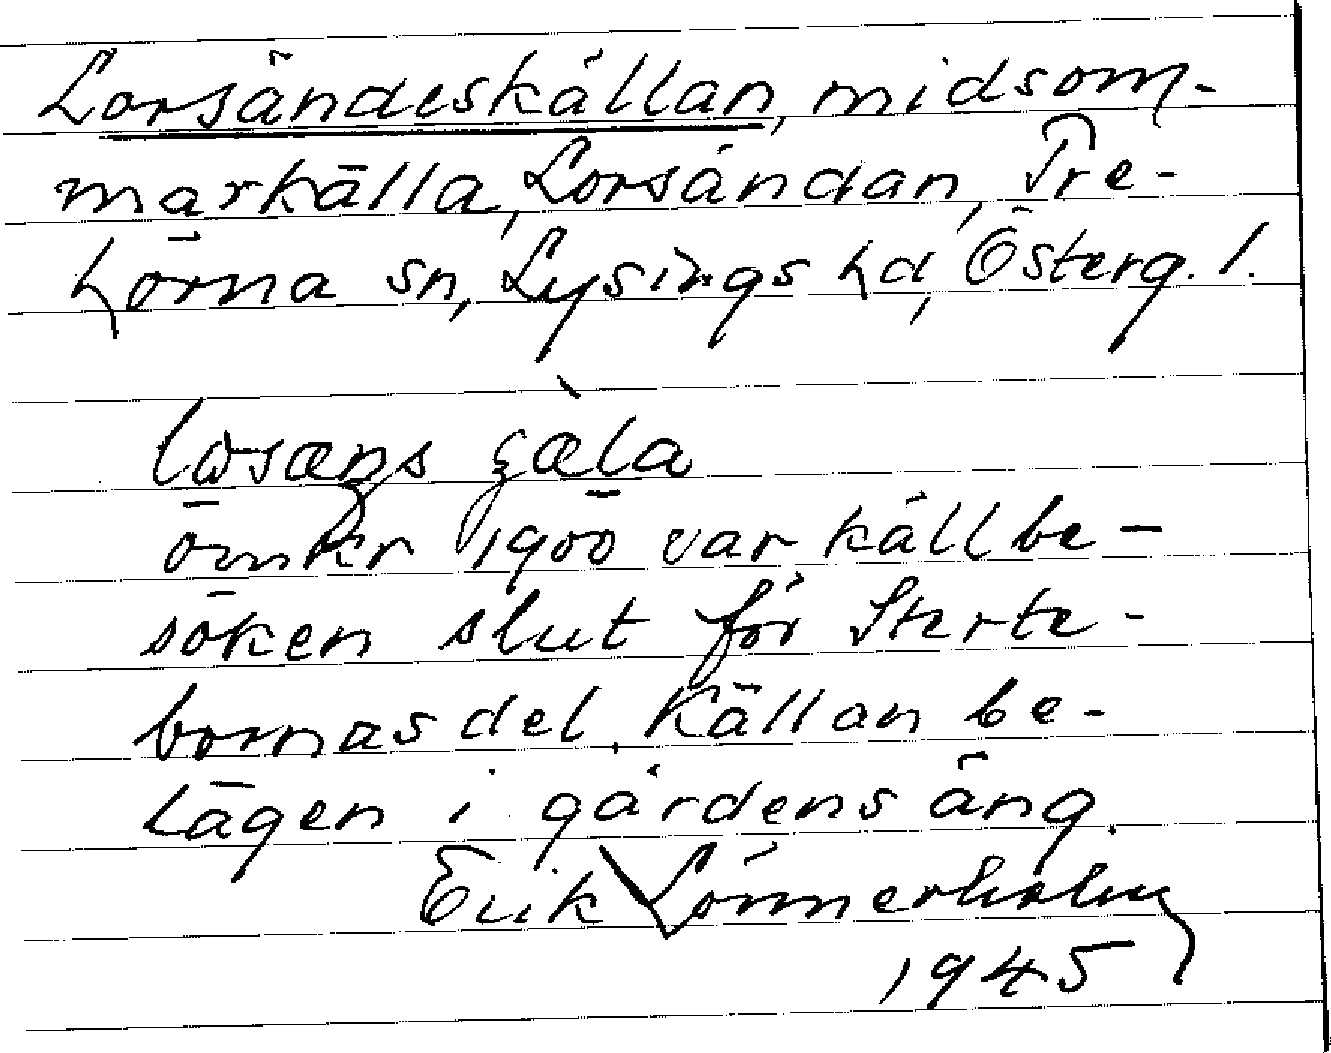 Lorsändeskällan, midsom-
markälla, Lorsändan, Tre-
hörna sn, Lysings hd, Österg. l.
omkr 1900 var källbe-
söken slut för Sterte-
bornas del. Källan be-
lägen i gårdens äng.
Erik Lönnerholm
1945